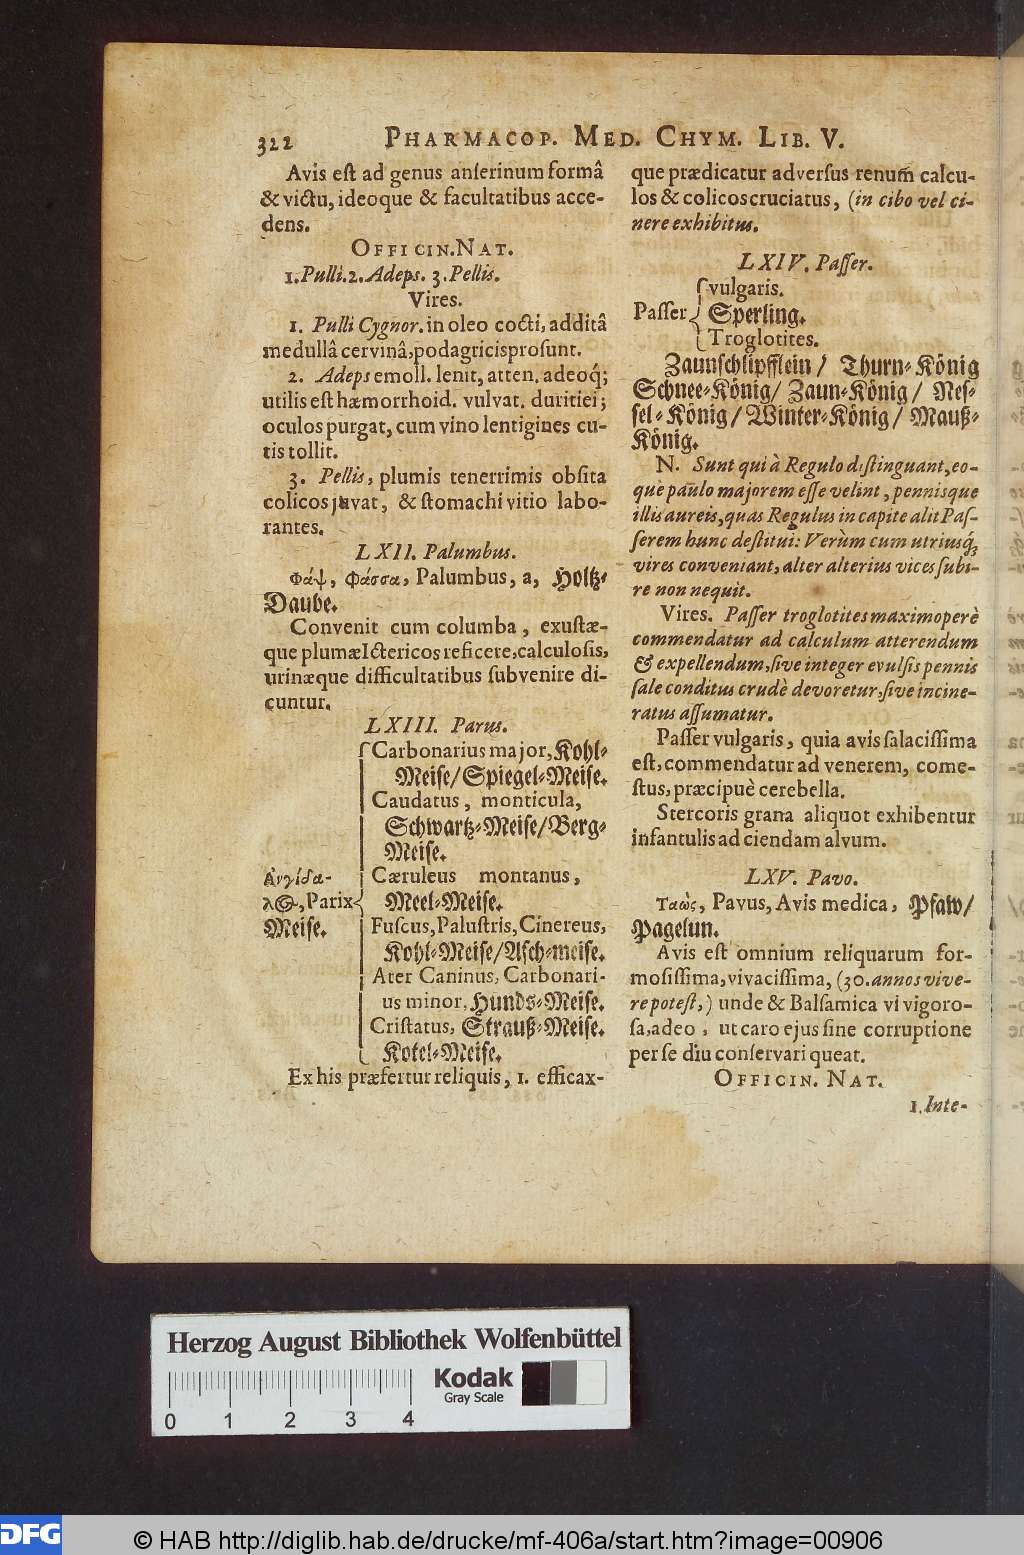 322 PHARMACOP. MED. CHYM. LIB. V.
Avis est ad genus anserinum formâ
& victu, ideoque & facultatibus acce-
dens.
OFFICIN. NAT.
1. Pulli. 2. Adeps. 3. Pellis.
Vires.
1. Pulli Cygnor. in oleo cocti, additâ
medullâ cervinâ, podagricis prosunt.
2. Adeps emoll. lenit, atten. adeoq́;
utilis est hæmorrhoid. vulvat. duritiei;
oculos purgat, cum vino lentigines cu-
tis tollit.
3. Pellis, plumis tenerrimis obsita
colicos juvat, & stomachi vitio labo-
rantes.
LXII. Palumbus.
Φάψ, φάσσα, Palumbus, a, Holtz-
Daube.
Convenit cum columba, exustæ-
que plumæ Ictericos reficere, calculosis,
urinæque difficultatibus subvenire di-
cuntur.
LXIII. Parus.
Carbonarius major, Kohl-
Meise/ Spiegel-Meise.
Caudatus, monticula,
Schwartz-Meise/ Berg-
Meise.
Αιγίδα- Cæruleus montanus,
λΘ, Parix Meel-Meise.
Meise. Fuscus, Palustris, Cinereus,
Kohl-Meise/ Asch-meise.
Ater Caninus, Carbonari-
us minor, Hunds-Meise.
Cristatus, Strauß-Meise.
Kotel-Meise.
Ex his præfertur reliquis, 1. efficax-
que prædicatur adversus renum̃ calcu-
los & colicos cruciatus, (in cibo vel ci-
nere exhibitus.
LXIV. Passer.
vulgaris.
Passer Sperling.
Troglotites.
Zaunschlipfflein/ Thurn-König
Schnee-König/ Zaun-König/ Nes-
sel-König/ Winter-König/ Mauß-
König.
N. Sunt qui à Regulo distinguant, eo-
que paulo majorem esse velint, pennisque
illis aureis, quas Regulus in capite alit Pas-
serem hunc destitui: Verùm cum utriusq́;
vires conveniant, alter alterius vices subi-
re non nequit.
Vires. Passer troglotites maximoperè
commendatur ad calculum atterendum
& expellendum, sive integer evulsis pennis
sale conditus crudè devoretur, sive incine-
ratus assumatur.
Passer vulgaris, quia avis salacissima
est, commendatur ad venerem, come-
stus, præcipuè cerebella.
Stercoris grana aliquot exhibentur
infantulis ad ciendam alvum.
LXV. Pavo.
Ταὼς, Pavus, Avis medica, Pfaw/
Pagelun.
Avis est omnium reliquarum for-
mosissima, vivacissima, (30. annos vive-
re potest,) unde & Balsamica vi vigoro-
sa, adeo, ut caro ejus sine corruptione
per se diu conservari queat.
OFFICIN. NAT.
1. Inte-
Herzog August Bibliothek Wolfenbüttel
Kodak
Gray Scale
0 1 2 3 4
DFG © HAB http://diglib.hab.de/drucke/mf-406a/start.htm?image=00906